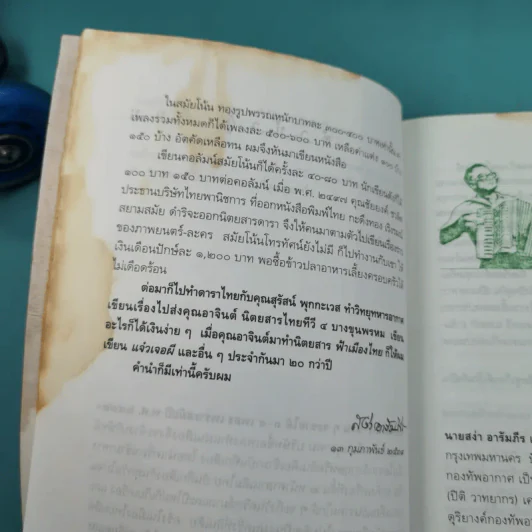 ในสมัยโน้น ทองรูปพรรณหนักบาทละ ๓๐๐-๔๐๐ บาทเท่านั้น
เพลงรวมทั้งหมดก็ได้เพลงละ ๕๐๐-๖๐๐ บาท เหลือค่าแต่ง ๑๐๐
๑๕๐ บ้าง อัตคัดเหลือทน ผมจึงหันมาเขียนหนังสือ
เขียนคอลัมน์สมัยโน้นก็ได้ครั้งละ ๔๐-๘๐ บาท นักเขียนดังก็ได้
๑๐๐ บาท ๑๕๐ บาทต่อคอลัมน์ เมื่อ พ.ศ. ๒๔๙๗
ประธานบริษัทไทยพานิชการ ที่ออกหนังสือพิมพ์ไทย กะดึงทอง
สยามสมัย ดำริจะออกนิตยสารดารา จึงให้คนมาตามตัวไปเขียนเรื่องราว
ของภาพยนตร์-ละคร สมัยโน้นโทรทัศน์ยังไม่มี ก็ไปทำงานกับเขา ได้
เงินเดือนปักษ์ละ ๑,๒๐๐ บาท พอซื้อข้าวปลาอาหารเลี้ยงครอบครัวได้
ไม่เดือดร้อน
ต่อมาก็ไปทำดาราไทยกับคุณสุรัสน์ พุกกะเวส ทำวิทยุทหารอากาศ
เขียนเรื่องไปส่งคุณอาจินต์ นิตยสารไทยทีวี ๔ บางขุนพรหม เขียน
อะไรก็ได้เงินง่าย ๆ เมื่อคุณอาจินต์มาทำนิตยสาร ฟ้าเมืองไทย ก็ให้ผม
เขียน แจ๋วเจอผี และอื่น ๆ ประจำกันมา ๒๐ กว่าปี
คำนำก็มีเท่านี้ครับผม
๑๓ กุมภาพันธ์
นายสง่า อารัมภีร
กรุงเทพมหานคร
กองทัพอากาศ
(ปิติ วาทยากร)
ดุริยางค์กองทัพอากาศ